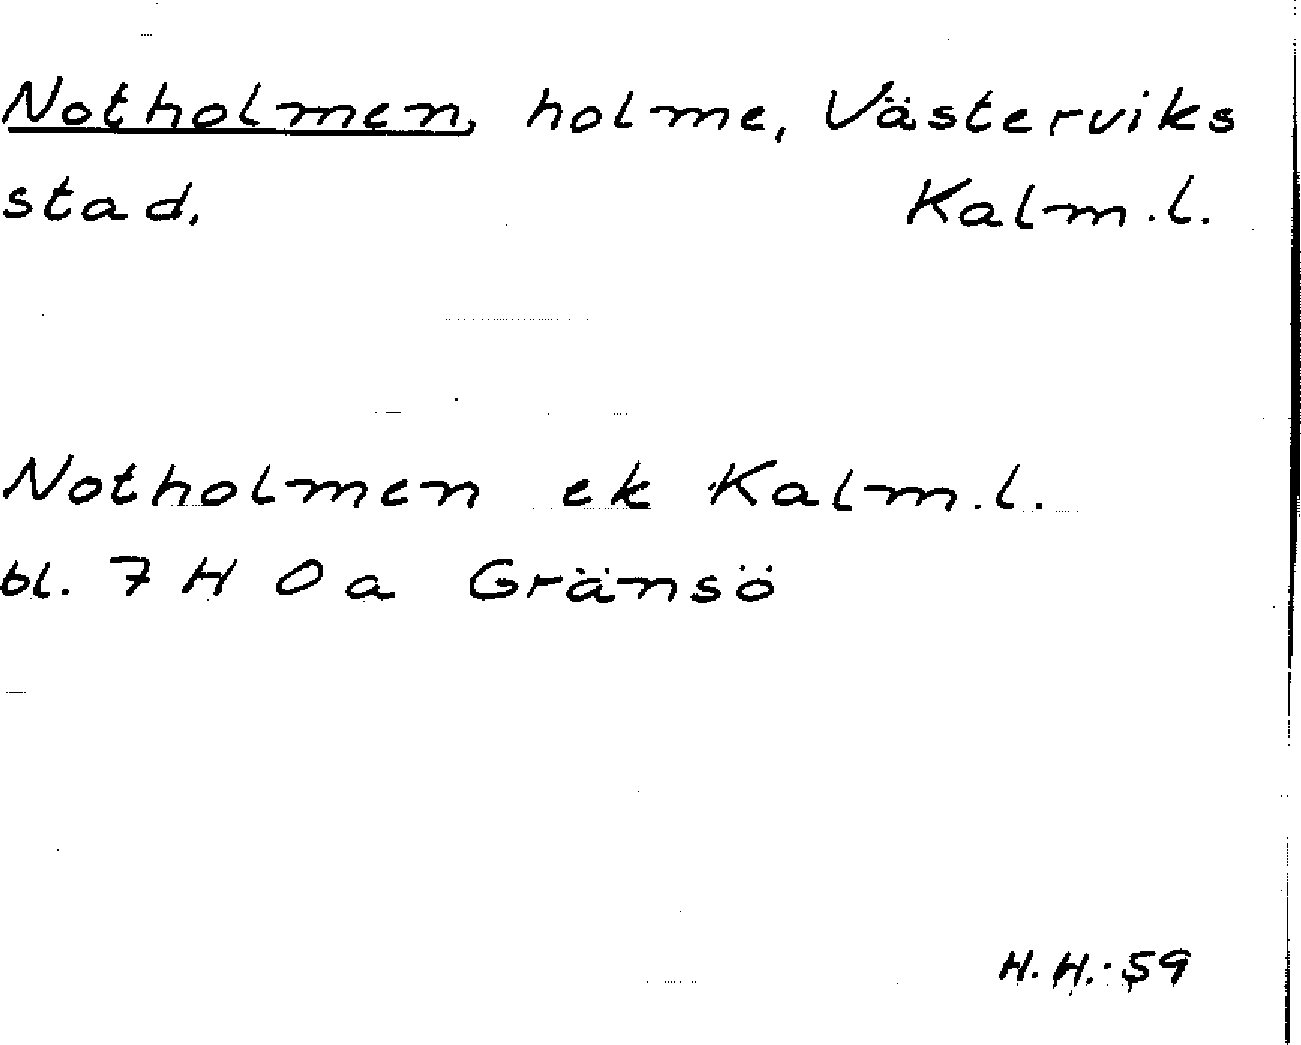 Notholmen, holme, Västerviks
stad. Kalm.l.
Notholmen ek Kalm.l.
bl. 7 H 0 a Gränsö
H.H.:59